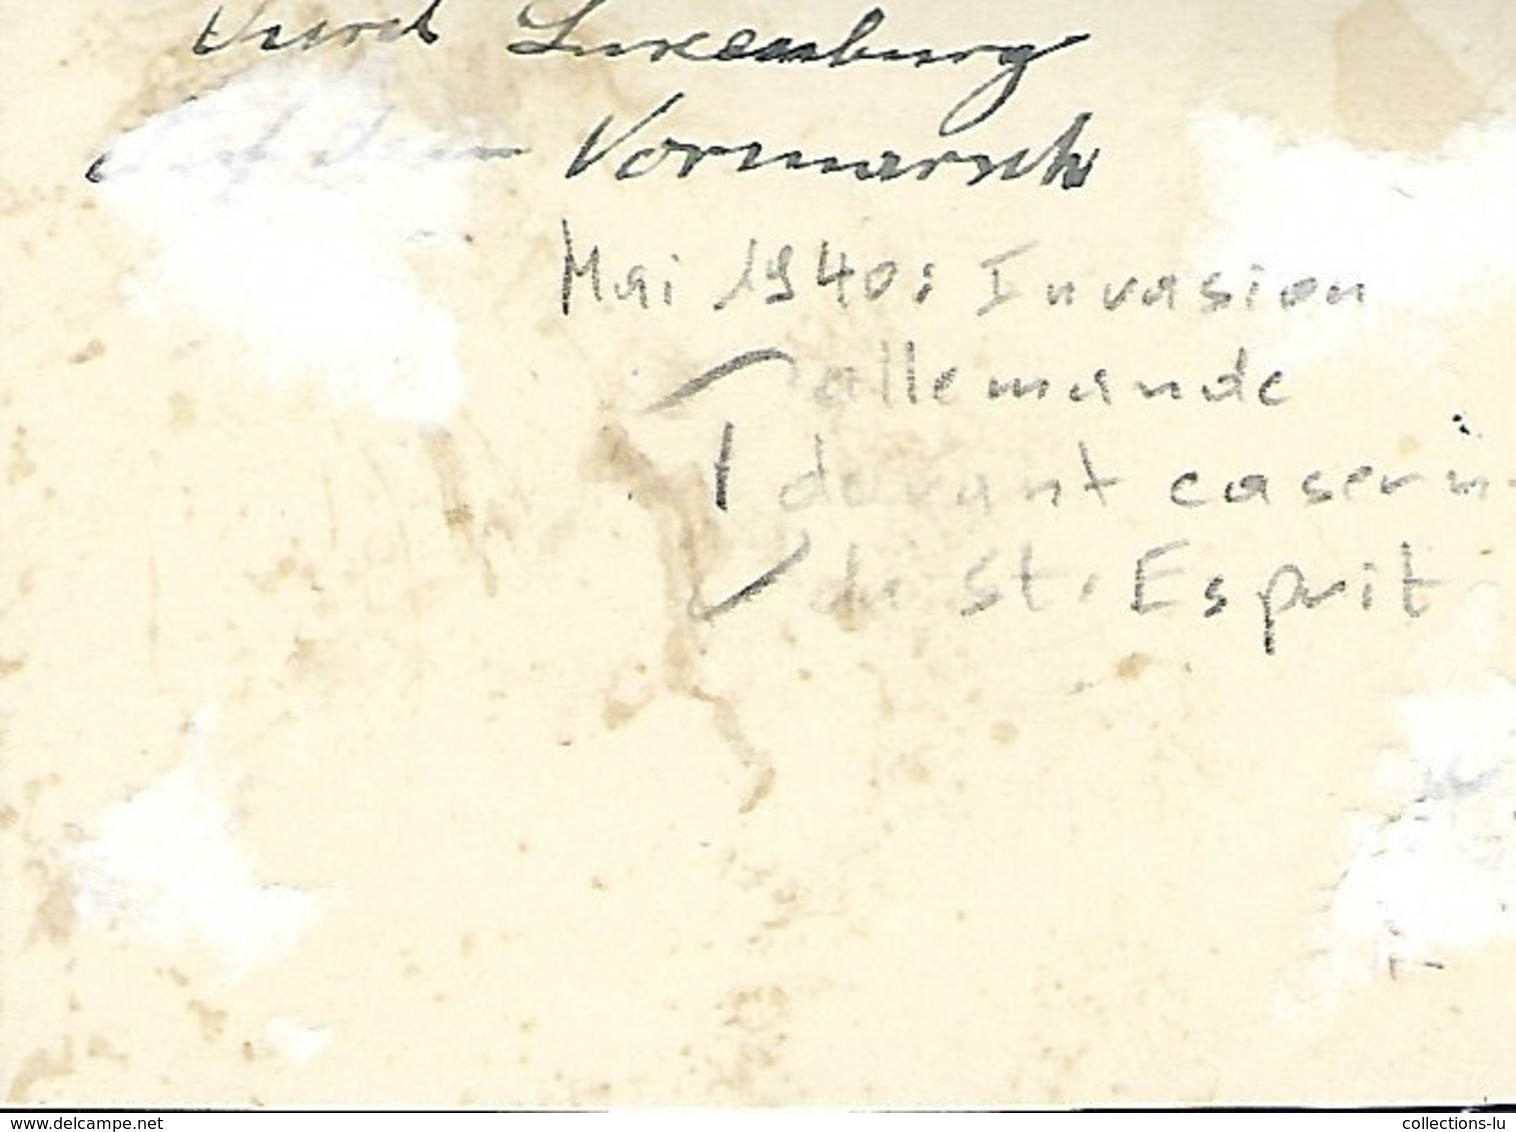 Durch Luxemburg
auf dem Vormarsch
Mai 1940: Invasion
allemande
devant casern
du St. Esprit
www.delcampe.net
collections-lu